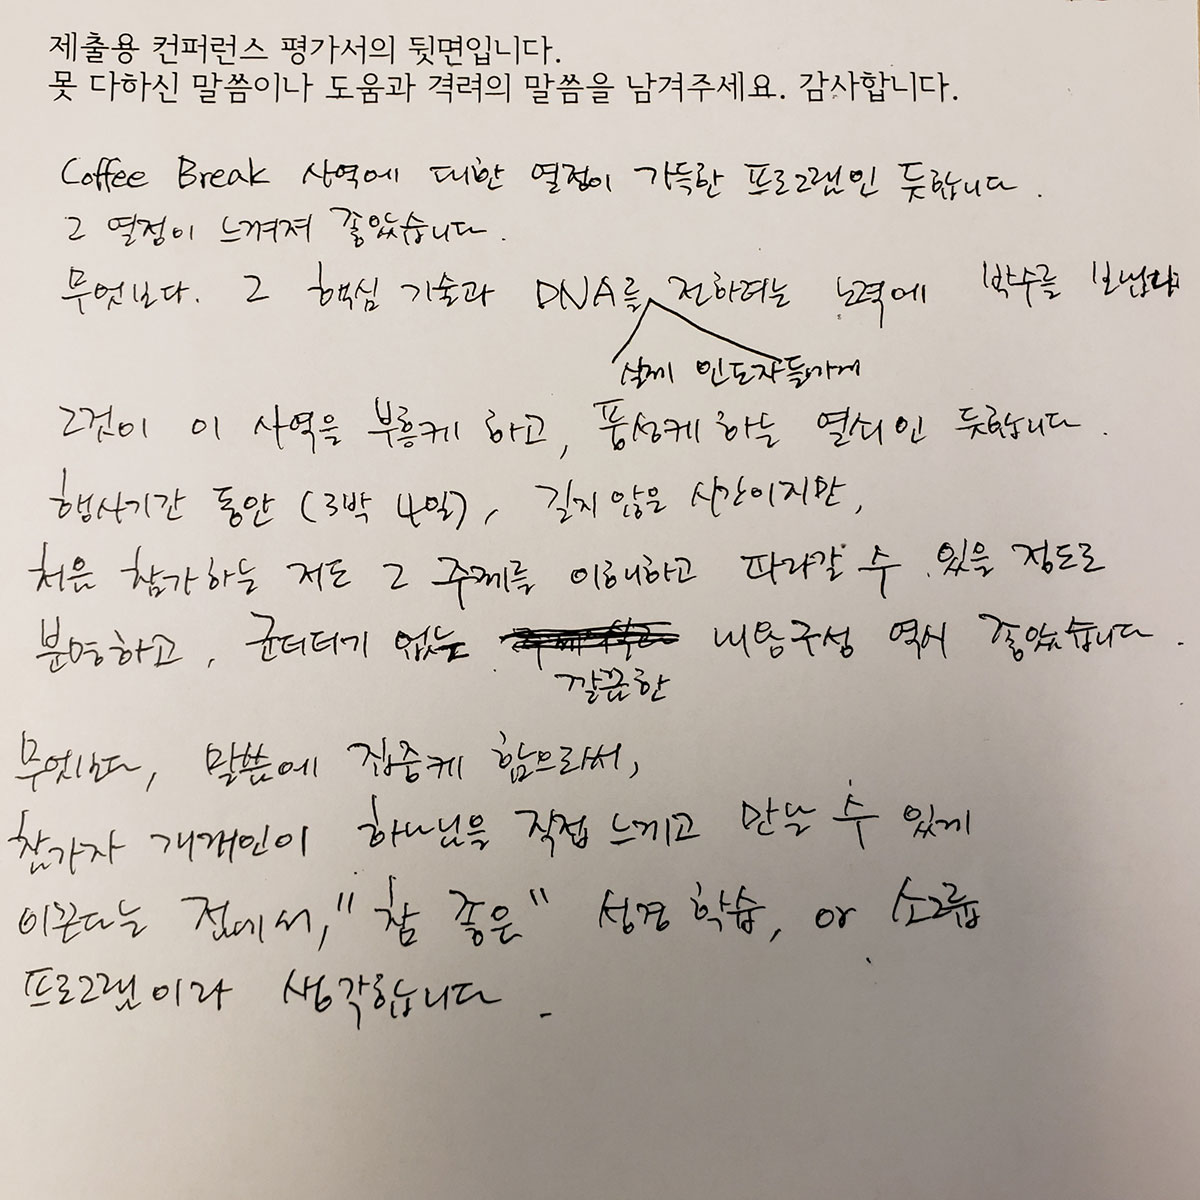 제출용 컨퍼런스 평가서의 뒷면입니다.
못 다하신 말씀이나 도움과 격려의 말씀을 남겨주세요. 감사합니다.
Coffee Break 사역에 대한 열정이 가득한 프로그램인 듯합니다.
그 열정이 느껴져 좋았습니다.
무엇보다. 그 핵심 기술과 DNA를 전하려는 노력에 박수를 보냅니다
실제 인도자들에게
그것이 이 사역을 부흥케 하고, 풍성케하는 열쇠인 듯합니다.
행사기간 동안 (3박 4일), 길지 않은 시간이지만,
처음 참가하는 저도 그 주제를 이해하고 따라갈 수 있을 정도로
분명하고, 군더더기 없는 내용구성 역시 좋았습니다.
깔끔한
무엇보다, 말씀에 집중케 함으로써,
참가자 개개인이 하나님을 직접 느끼고 만날 수 있게
이끈다는 점에서, "참 좋은" 성경 학습, or 소그룹
프로그램이라 생각합니다.